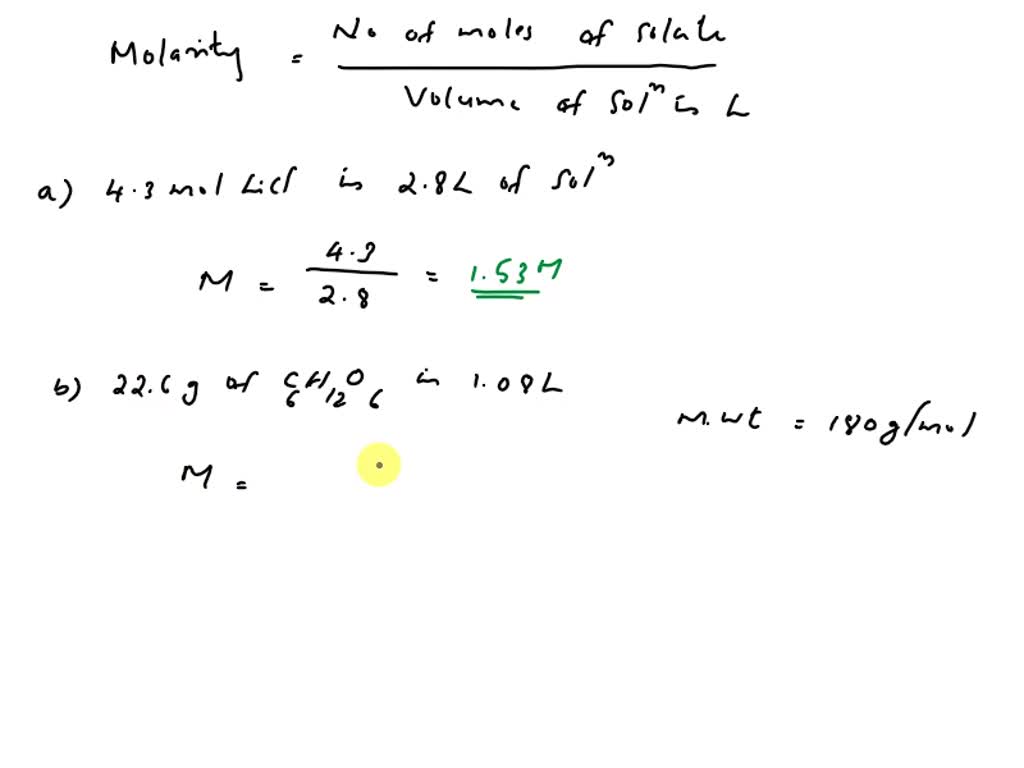 Molarity = No of moles of solute / Volume of Solⁿ in L
a) 4.3 mol LiCl in 2.8L of Solⁿ
M = 4.3 / 2.8 = 1.53 M
b) 22.6 g of C6H12O6 in 1.08L
M.wt = 180g/mol
M =